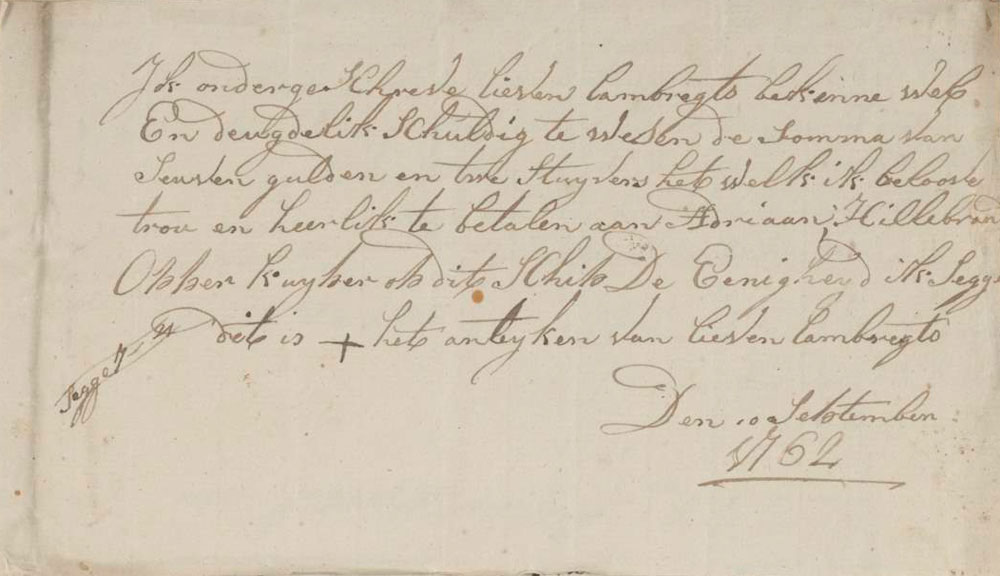 Ik ondergeschreve lieven lambregts bekenne wel
En deugdelik Schuldig te wesen de Somma van
Seuven gulden en twe Stuyvers het welk ik beloove
trou en heerlik te betalen aan Adriaan Hillebrand
Opper kuyper op dit Schip De Eenigheyd ik Segge
dit is + het anteyken van lieven lambregts
Segge 7
Den 10 September
1762